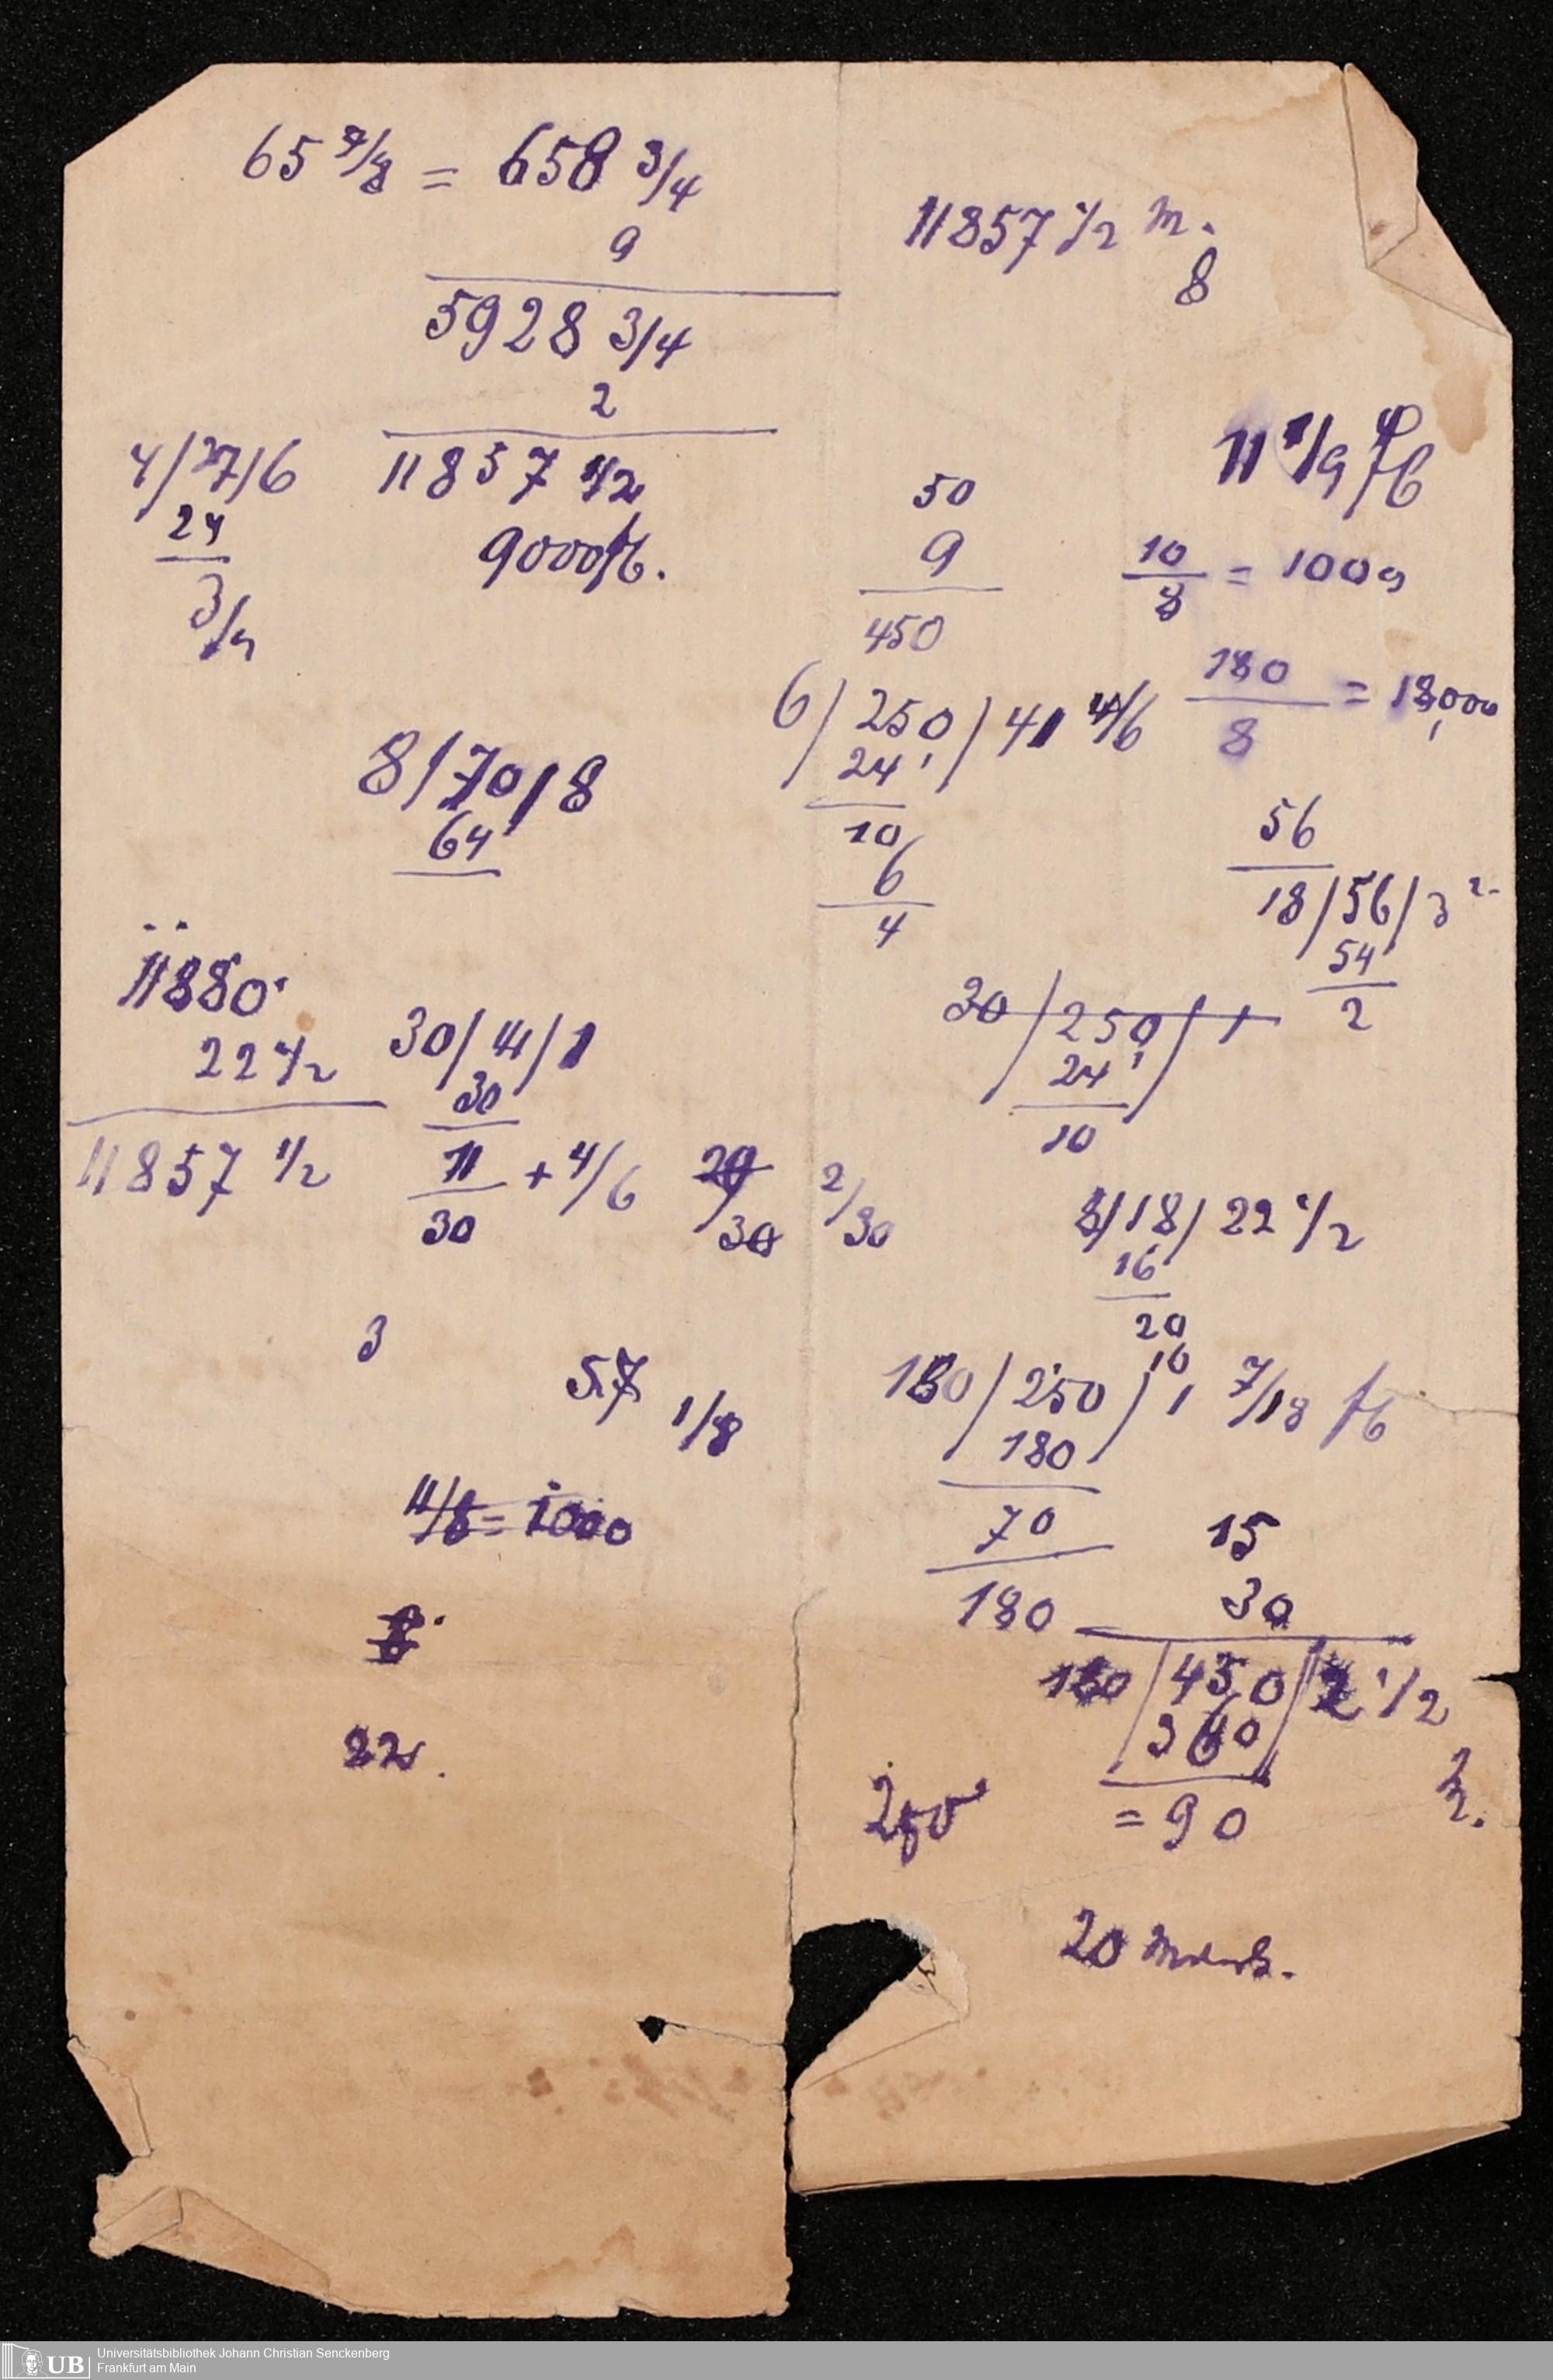 65 7/8 = 658 3/4
9
5928 3/4
2
11857 1/2
9000 ℔.
4/27/6
24
3/4
8/70/8
64
11880
22 1/2
11857 1/2
30/41/1
30
11/30 + 4/6
2/30
3
57
1/8
11/8 = 1000
8
22.
11857 1/2 M.
8
11 1/9 ℔
50
9
450
10/8 = 1000
180/8 = 18,000
6/250/41 4/6
24
10
6
4
56
18/56/3 2
54
2
30/250/1
24
10
8/18/22 1/2
16
20
16
180/250/1 7/18 ℔
180
70
180
15
30
180/450/2 1/2
360
= 90
250
20 Mark.
UB
Universitätsbibliothek Johann Christian Senckenberg
Frankfurt am Main